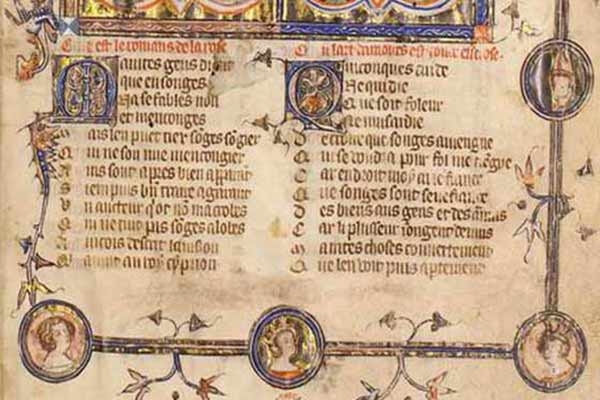 Ci est le romans de la rose
Maintes gens dient
que en songes
Na se fables non
et menconges
Mais len puet tiex sōges sōgier
Qui ne son mie mencongier
Ains sont apres bien apparant
Si em puis bn traire a garant
Un aucteur q'ot non macrobes
Qui ne tint pas sōges a lobes
Aincois descrit la vision
avint au roy cyprion
Ou lart damours est toute enclose
Quiconques cuide
Ne qui die
Que soit foleur
ne musardie
De croire que songes aviengne
Qui se voudra pour fol me tiēgne
Car endroit moy ai ie fiance
Que songes sont senefiance
Des biens aus gens et des anuis
Car li pluseur songent de nuis
Maintes choses couvertement
Que len voit puis apertement